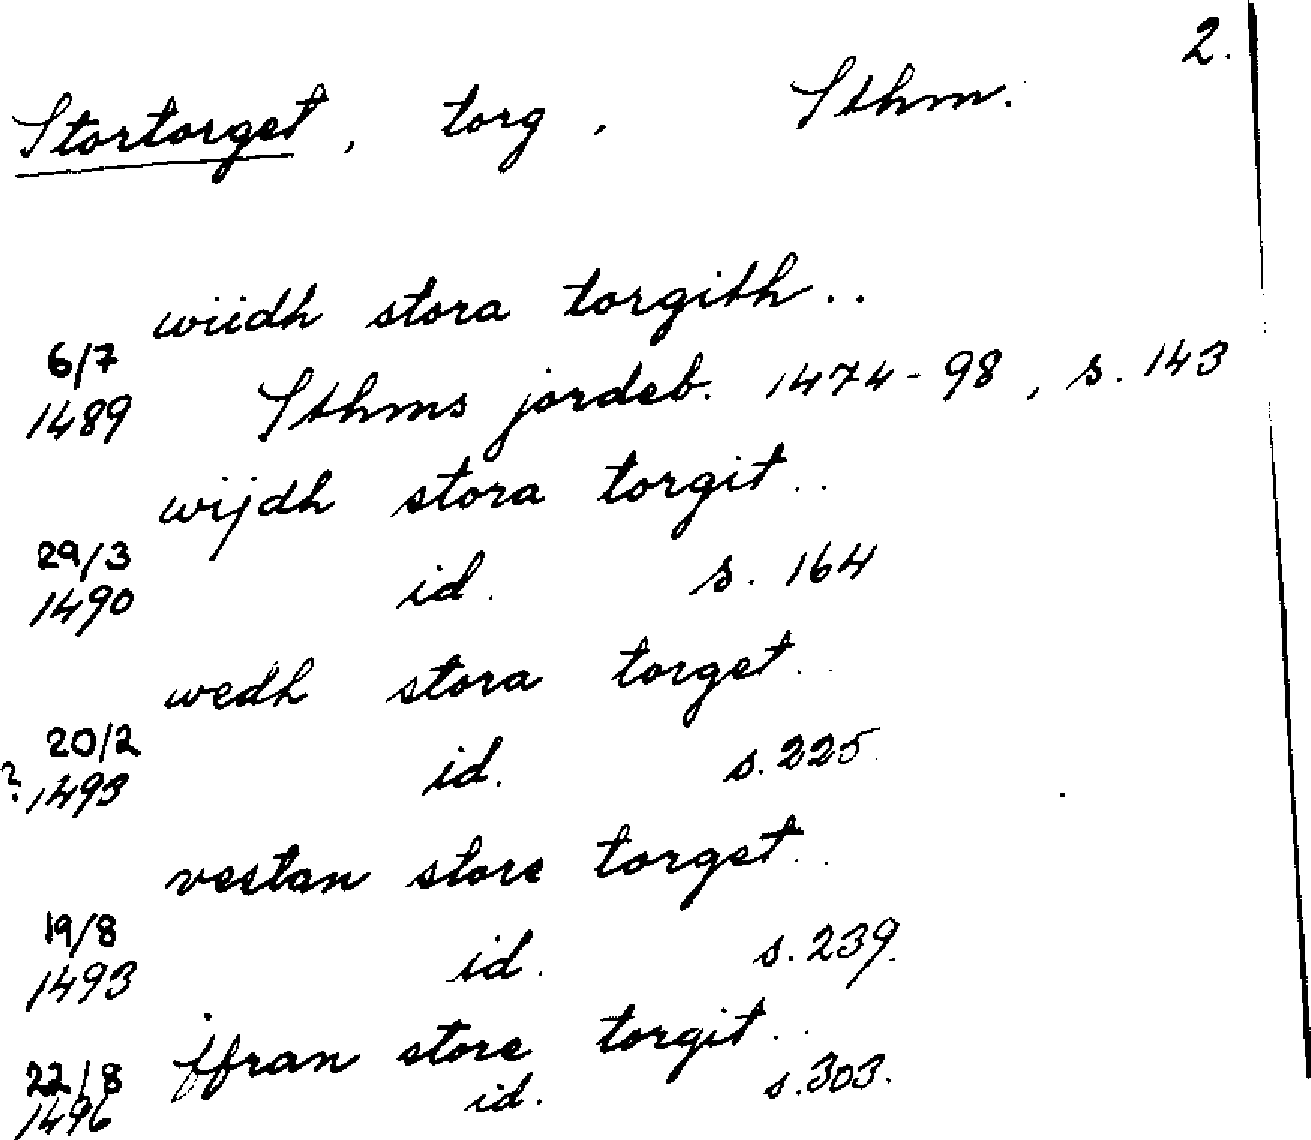 2.
Stortorget, torg, Sthm.
wiidh stora torgith..
6/7
1489 Sthms jordeb. 1474-98, s. 143
wijdh stora torgit..
29/3
1490 id. s. 164
wedh stora torget..
20/2
? 1493 id. s. 225
vestan store torget..
19/8
1493 id. s. 239.
ffran store torgit..
22/8
1496 id. s. 303.